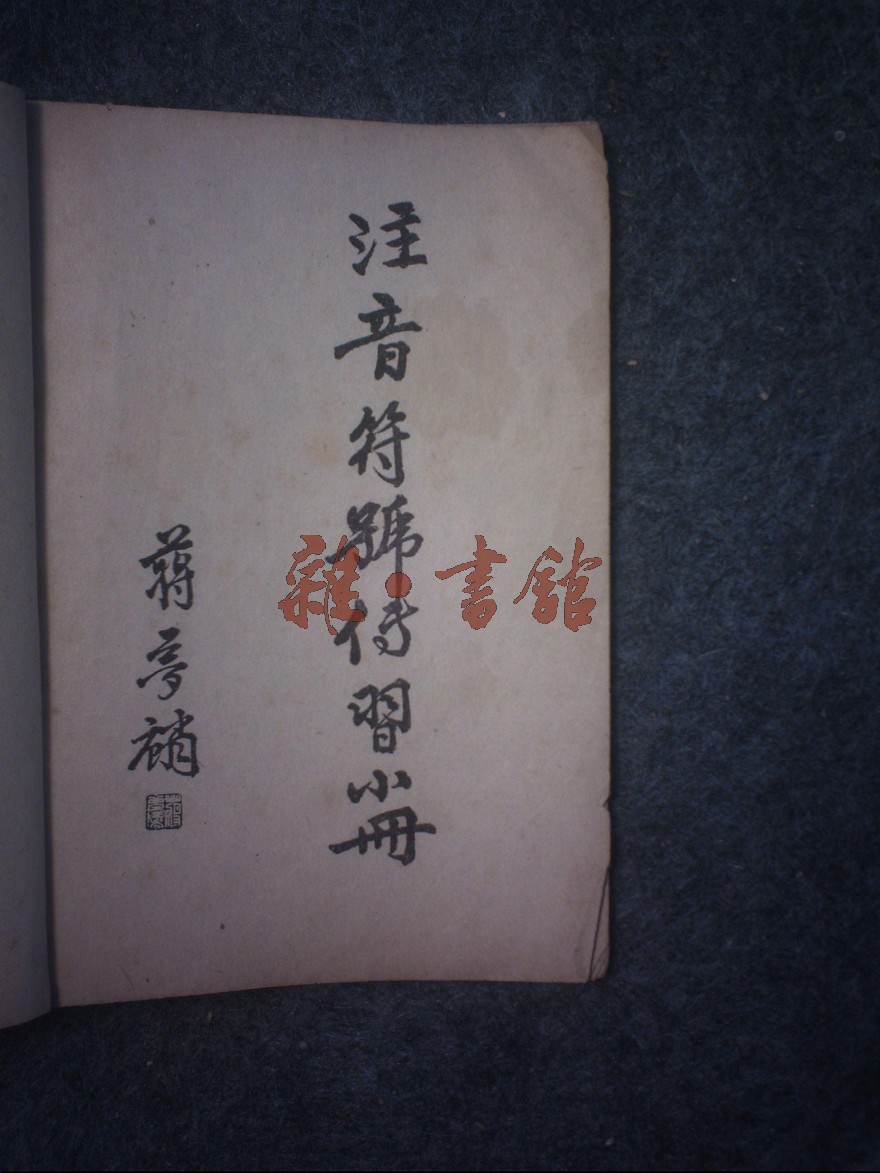 注音符號传習小冊
蔣夢麟
雜·書舘